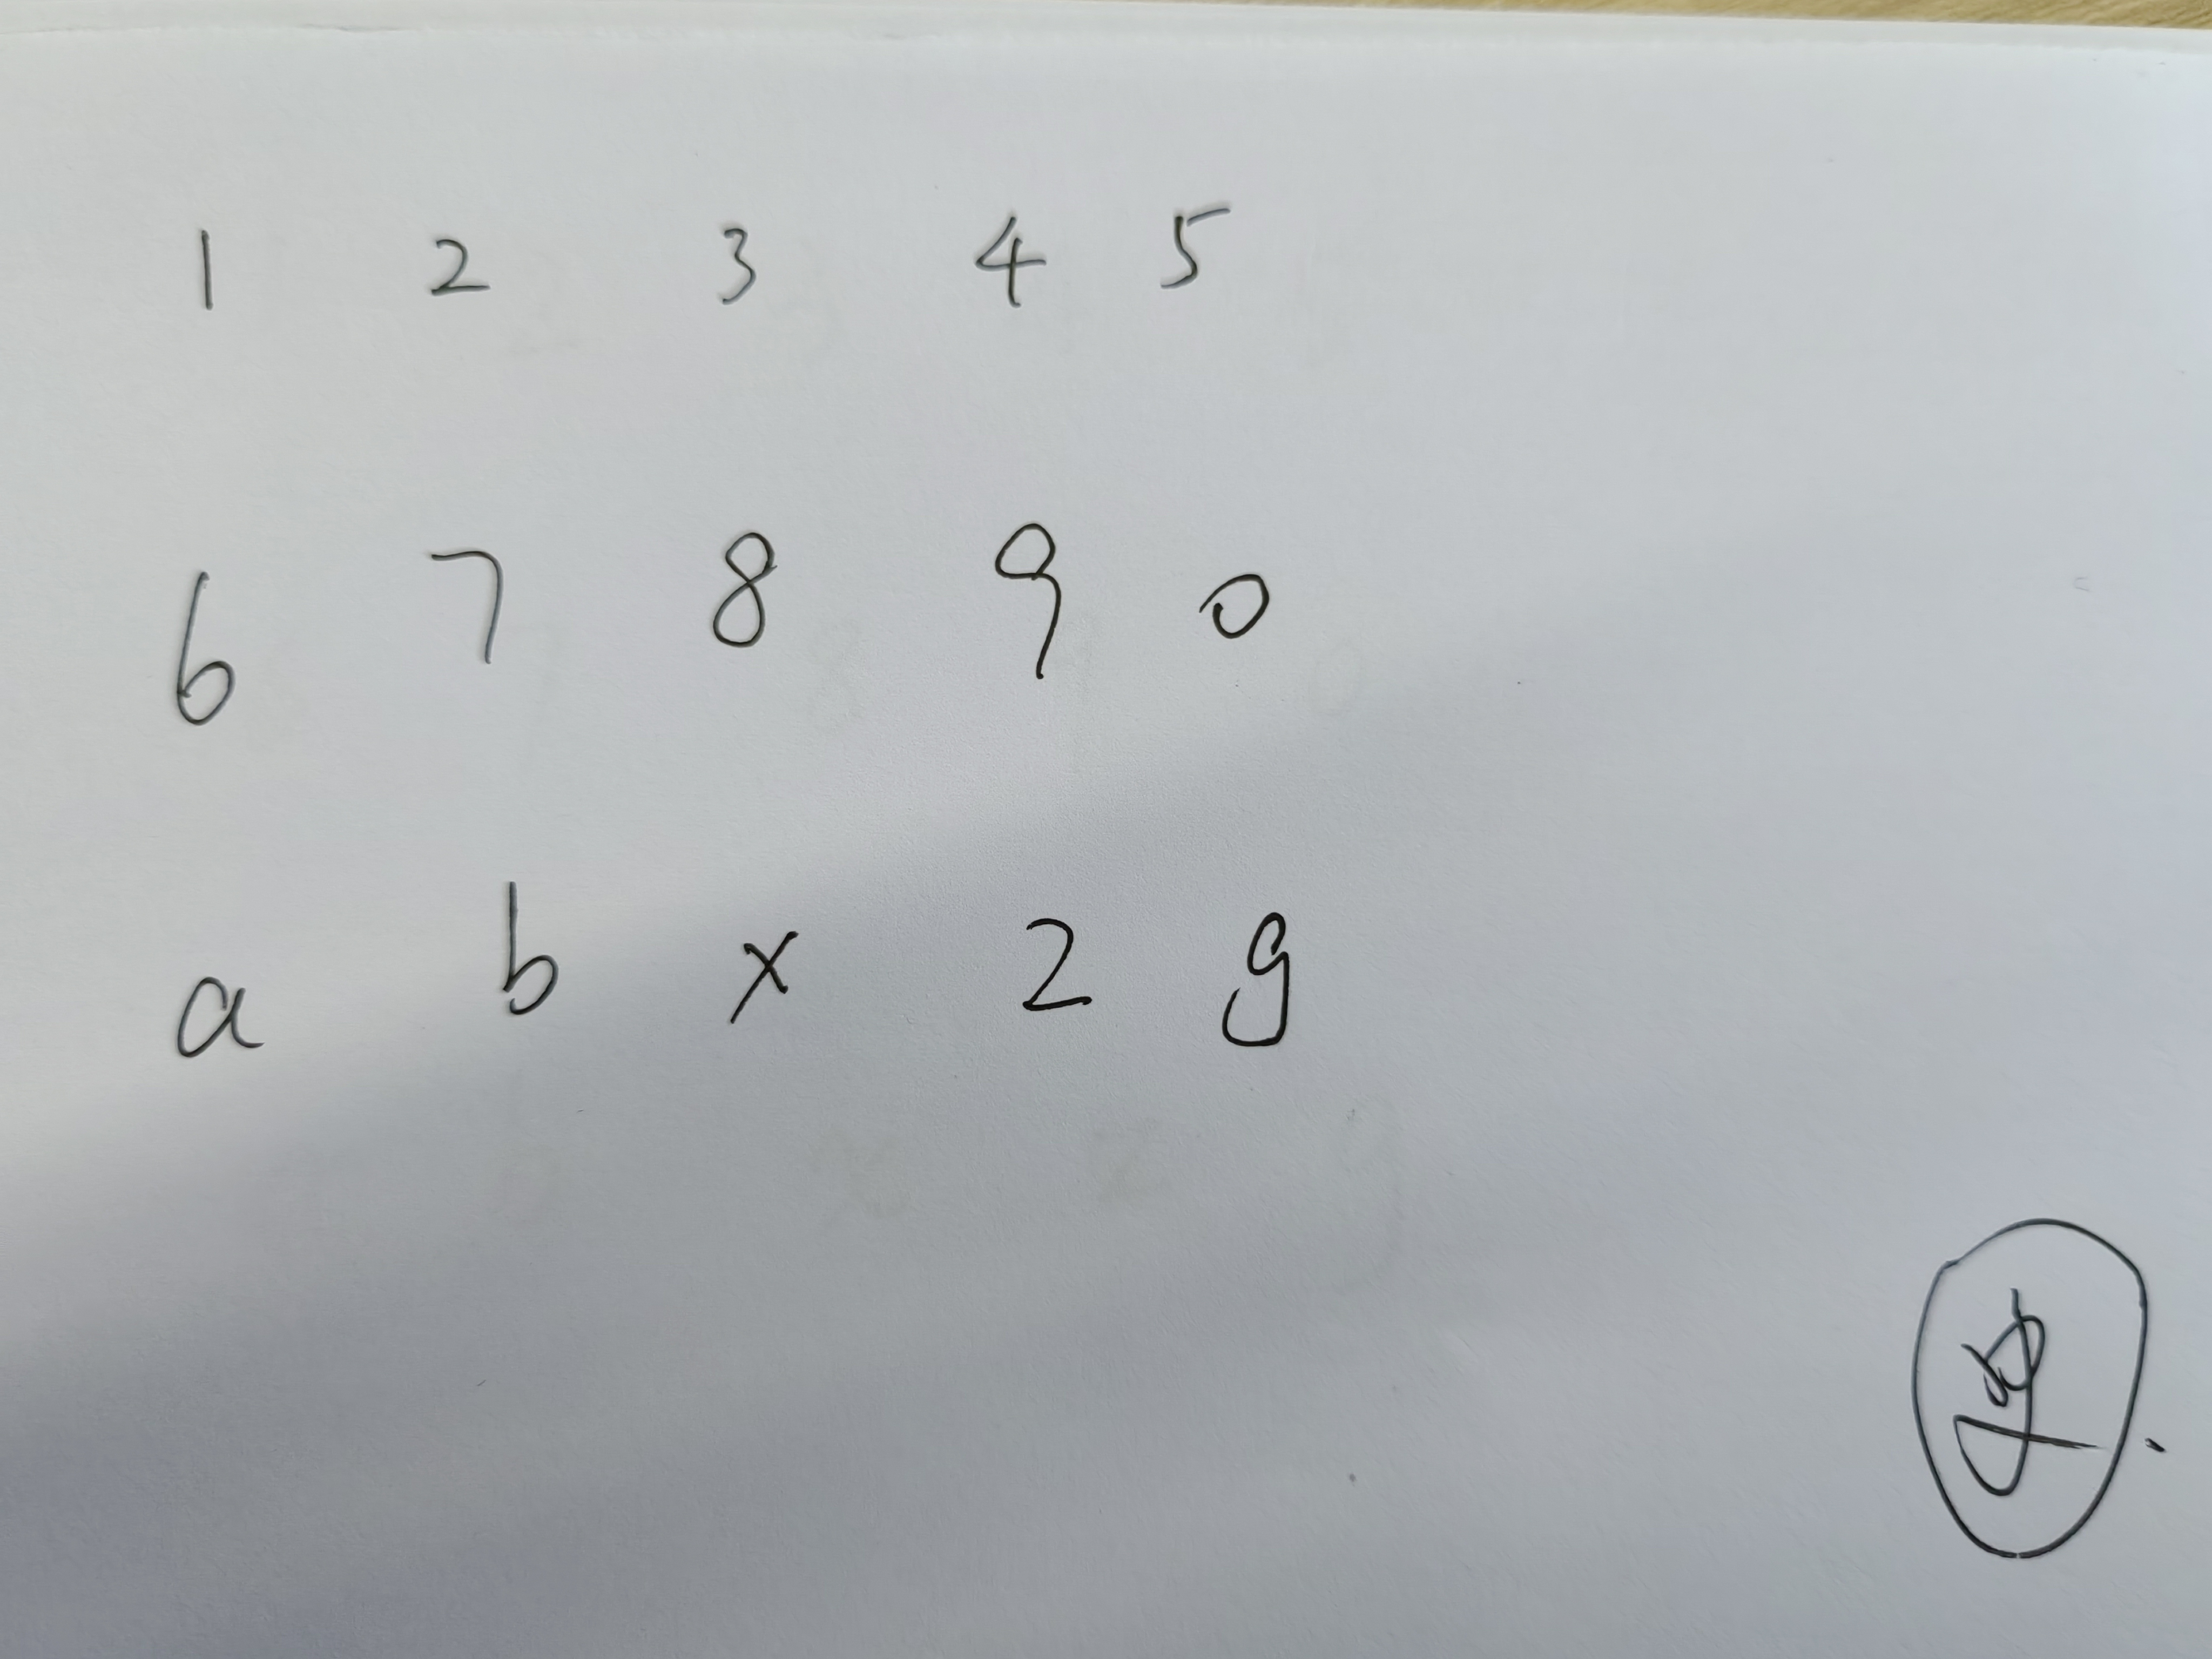 1 2 3 4 5
6 7 8 9 0
a b x 2 g